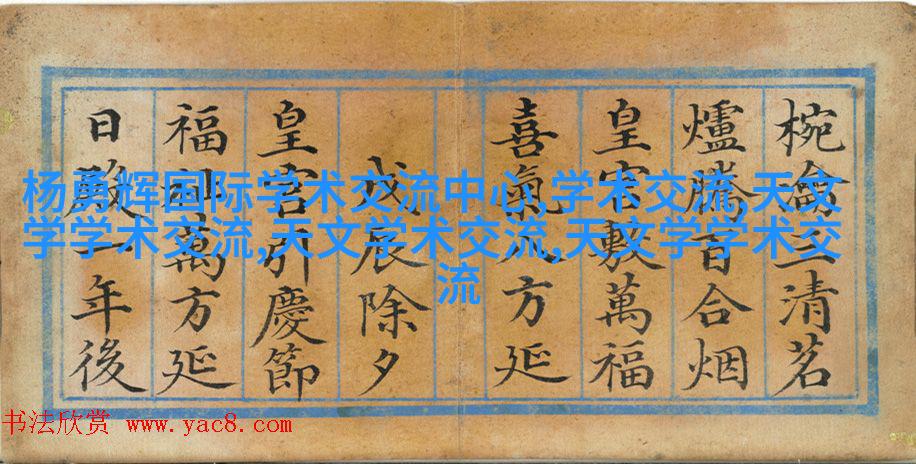 椀瀹三清茗
爐騰百合烟
皇宮敷萬福
喜氣八方延
戊辰除夕
皇宮引慶節
福即萬方延
日一年後
杨勇辉国际学术交流中心,学术交流,天文
学学术交流,天文学术交流,天文学学术交
流
书法欣赏 www.yac8.com